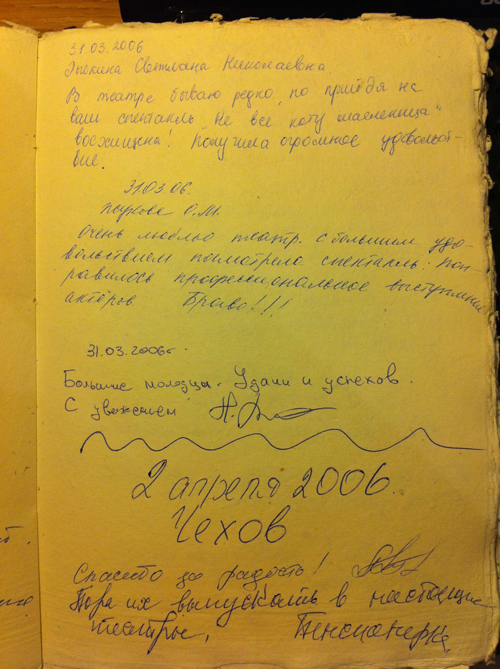 31.03.2006
Светлана Николаевна.
В театре бываю редко, но прийдя на
ваш спектакль "Не все коту масленница"
восхищена! Получила огромное удовольст-
вие.
31.03.06.
О.М.
Очень люблю театр. С большим удо-
вольствием посмотрела спектакль. Пон
равилось профессиональное выступление
актёров Браво!!!
31.03.2006г.
Большие молодцы. Удачи и успехов.
С уважением
2 апреля 2006.
Чехов
Спасибо за радость!
Пора их выпускать в настоящие
театры. Пенсионерка